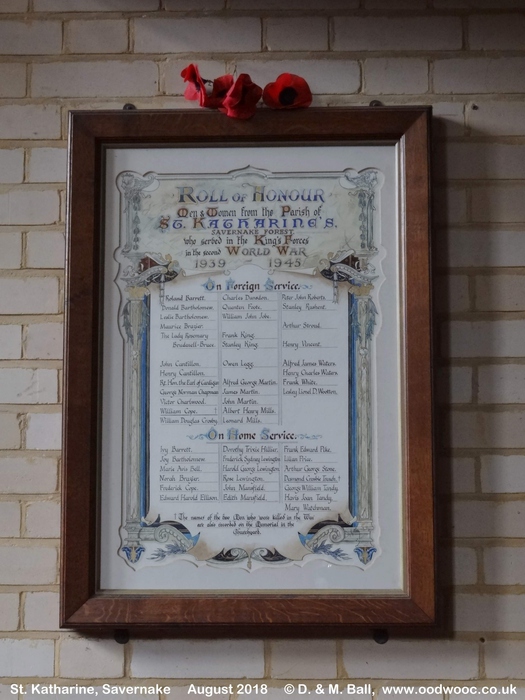 ROLL OF HONOUR
Men & Women from the Parish of
ST. KATHARINE'S.
SAVERNAKE FOREST.
who served in the King's Forces
in the second WORLD WAR
1939 1945
On Foreign Service.
Roland Barrett. Charles Dunsdon. Peter John Roberts.
Donald Bartholomew. Quenten Foote. Stanley
Leslie Bartholomew. William John Jobe.
Maurice Brayler. Arthur Stroud.
The Lady Rosemary Frank King.
Brudenell-Bruce. Stanley King. Henry Vincent.
John Cantillon. Owen Legg. Alfred James Waters.
Henry Cantillon. Henry Charles Waters.
Rt. Hon. the Earl of Cardigan Alfred George Martin. Frank White.
George Norman Chapman James Martin. Lesley Lionel D. Wootten.
Victor Chartwood. John Martin.
William Cope. ! Albert Henry Mills.
William Douglas Crosby. Leonard Mills.
On Home Service.
Ivy Barrett. Dorothy Trixie Hillier. Frank Edward Pike.
Joy Bartholomew. Frederick Sydney Lewington Lilian Price.
Maria Avis Ball. Harold George Lewington Arthur George Stone.
Norah Brayler. Rose Lewington. Desmond Crosbie Tuach. !
Frederick Cope. John Mansfield. George William Tandy.
Edward Harold Ellison Edith Mansfield. Maris Joan Tandy.
Mary Watchman.
! The names of the two Men who were killed in the War
are also recorded on the Memorial in the
Churchyard.
St. Katharine, Savernake August 2018 © D. & M. Ball, www.oodwooc.co.uk